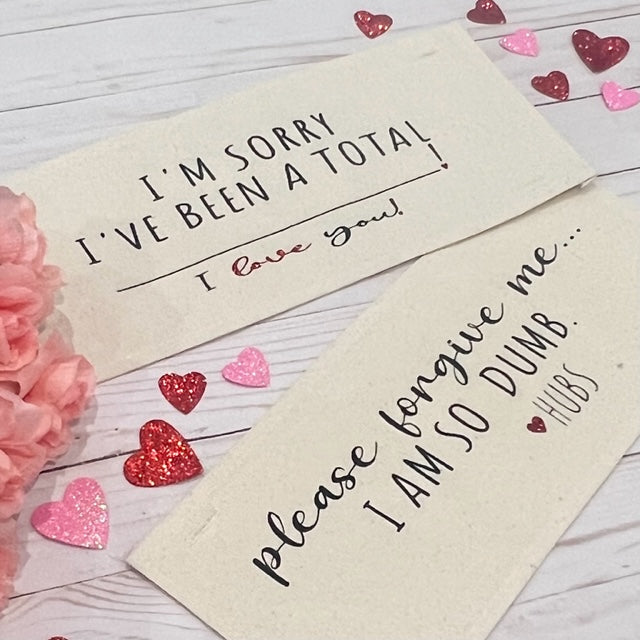 I'M SORRY
I'VE BEEN A TOTAL
!
I love you!
please forgive me...
I AM SO DUMB.
HUBS